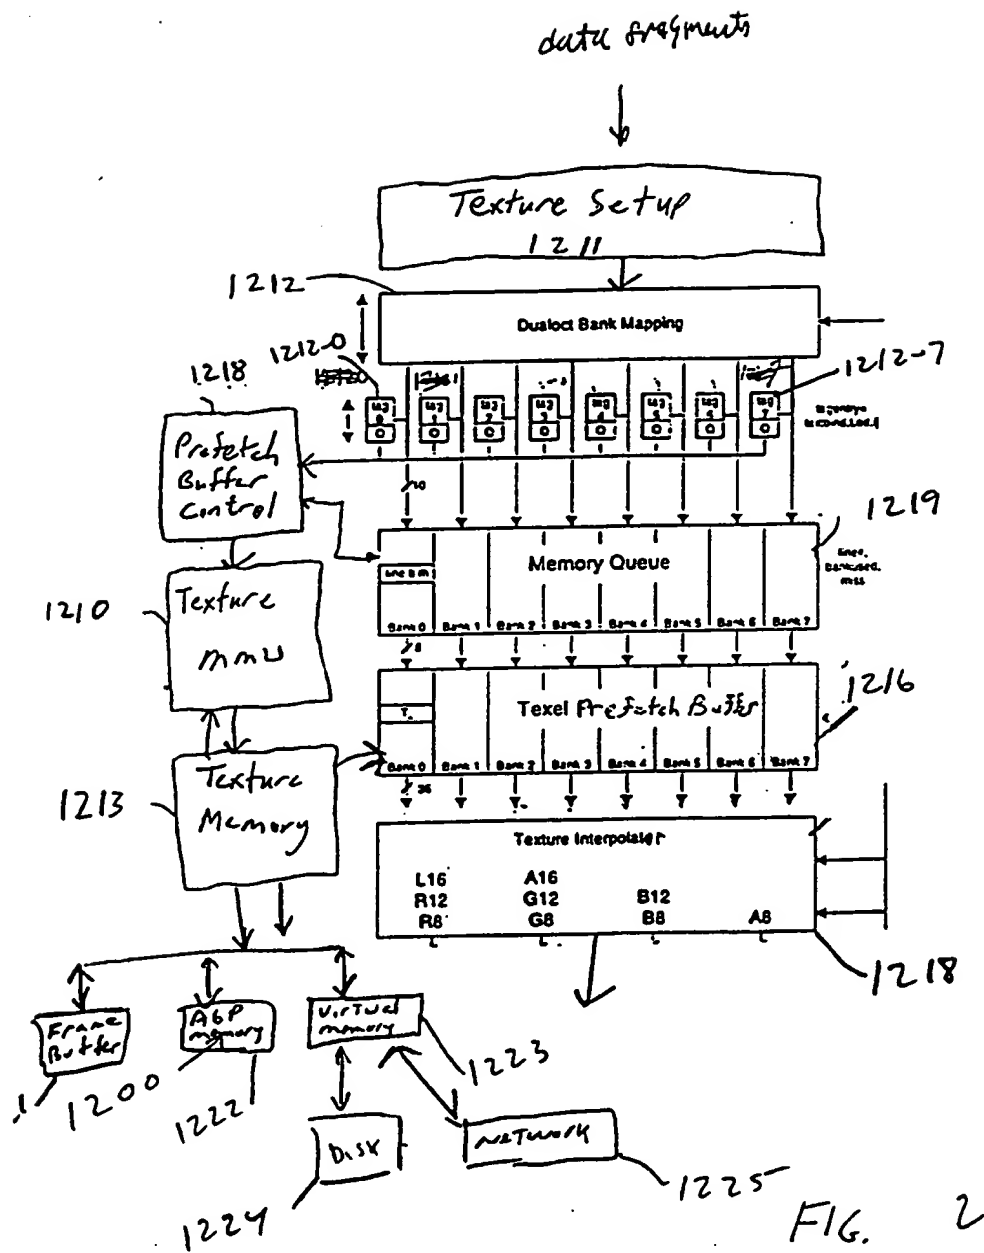 data fragments
Texture Setup
1211
1212
Dualoct Bank Mapping
1212-0
1212-7
1218
tag
0
tag
1
0
tag
2
0
tag
3
0
tag
4
0
tag
5
0
tag
6
0
tag
7
0
Prefetch
Buffer
Control
1219
Memory Queue
Bank 0 Bank 1 Bank 2 Bank 3 Bank 4 Bank 5 Bank 6 Bank 7
1210
Texture
MMU
1216
Texel Prefetch Buffer
Bank 0 Bank 1 Bank 2 Bank 3 Bank 4 Bank 5 Bank 6 Bank 7
36
1213
Texture
Memory
Texture Interpolater
L16 A16
R12 G12 B12
R8 G8 B8 A8
1218
Frame
Buffer
AGP
memory
Virtual
memory
1200
1222
1223
Disk
Network
1224
1225
FIG. 2